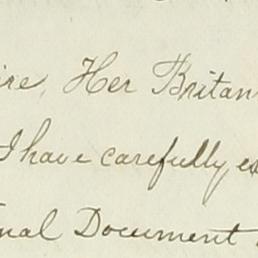 ire, Her Britan
I have carefully ex
nal Document